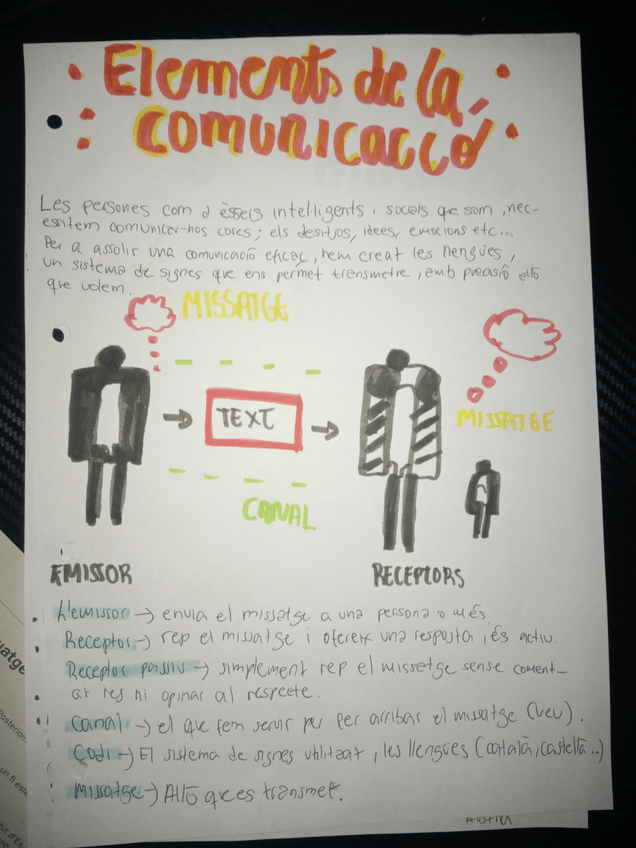 Elements de la
comunicacció
Les persones com a èssers intel·ligents i socials que som, nec-
essitem comunicar-nos coses; els desitjos, idees, emocions etc...
Per a assolir una comunicació eficaç, hem creat les llengües,
un sistema de signes que ens permet transmetre, amb precisió allò
que volem.
MISSATGE
TEXT
MISSATGE
CANAL
EMISSOR
RECEPTORS
L'emissor → envia el missatge a una persona o més.
Receptor → rep el missatge i ofereix una resposta, és actiu.
Receptor passiu → simplement rep el missetge sense coment-
ar res ni opinar al respecte.
Canal → el que fem servir per fer arribar el missatge (veu).
Codi → El sistema de signes utilitzat, les llengües (català, castellà...)
Missatge → Allò que es transmet.